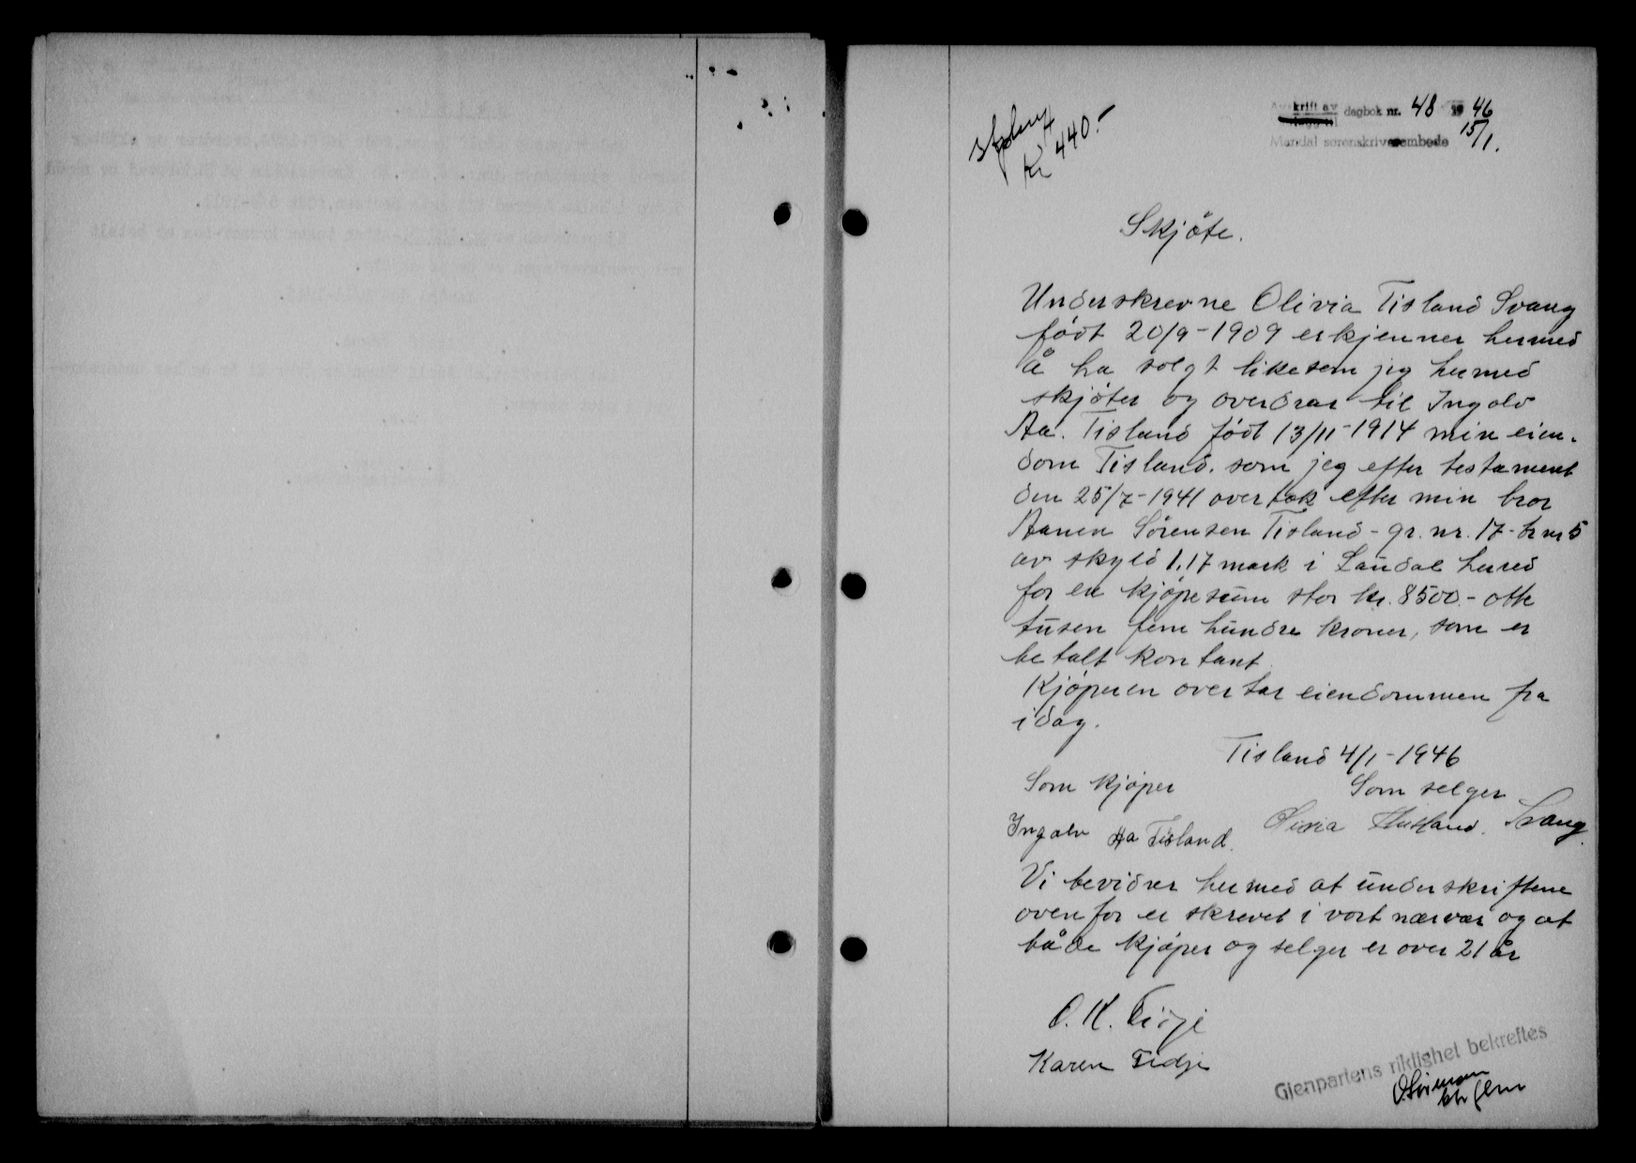 Avskrift av dagbok nr. 48 1946
Mandal sorenskriverembede 15/1.
kr 440.-
Skjöte.
Underskrevne Olivia Tisland Svang
födt 20/9-1909 erkjenner hermed
å ha solgt likesom jeg hermed
skjöter og overdrar til Ingolv
Aa. Tisland födt 13/11-1914 min eien-
dom Tisland. som jeg efter testament
den 25/7-1941 overtok efter min bror
Aanen Sörensen Tisland - gr. nr. 17 - br nr 5
av skyld 1.17 mark i Laudal hered
for en kjöpesum stor kr. 8500.- otte
tusen fem hundre kroner, som er
betalt kontant.
Kjöperen overtar eiendommen fra
idag.
Tisland 4/1-1946
Som kjöper Som selger
Ingolv Aa Tisland. Olivia Tisland. Svang.
Vi bevidner hermed at underskriftene
ovenfor er skrevet i vort nærvær og at
både kjöper og selger er over 21 år
O. K. Tidje
Karen Tidje
Gjenpartens riktighet bekreftes